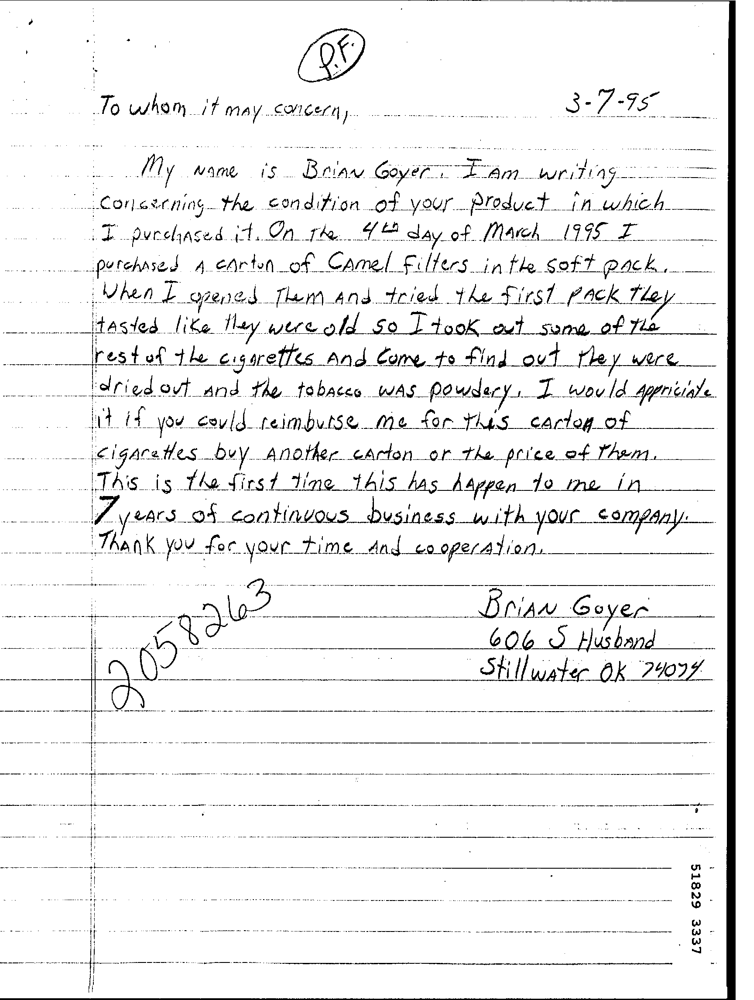 P.F.
To whom it may concern,
3-7-95
My name is Brian Goyer. I am writing
concerning the condition of your product in which
I purchased it. On the 4th day of March 1995 I
purchased a carton of Camel filters in the soft pack.
When I opened them and tried the first pack they
tasted like they were old so I took out some of the
rest of the cigarettes and come to find out they were
dried out and the tobacco was powdery. I would appriciate
it if you could reimburse me for this carton of
cigarettes buy another carton or the price of them.
This is the first time this has happen to me in
7 years of continuous business with your company.
Thank you for your time and cooperation.
Brian Goyer
606 S Husband
Stillwater OK 74074
2058263
51829 3337